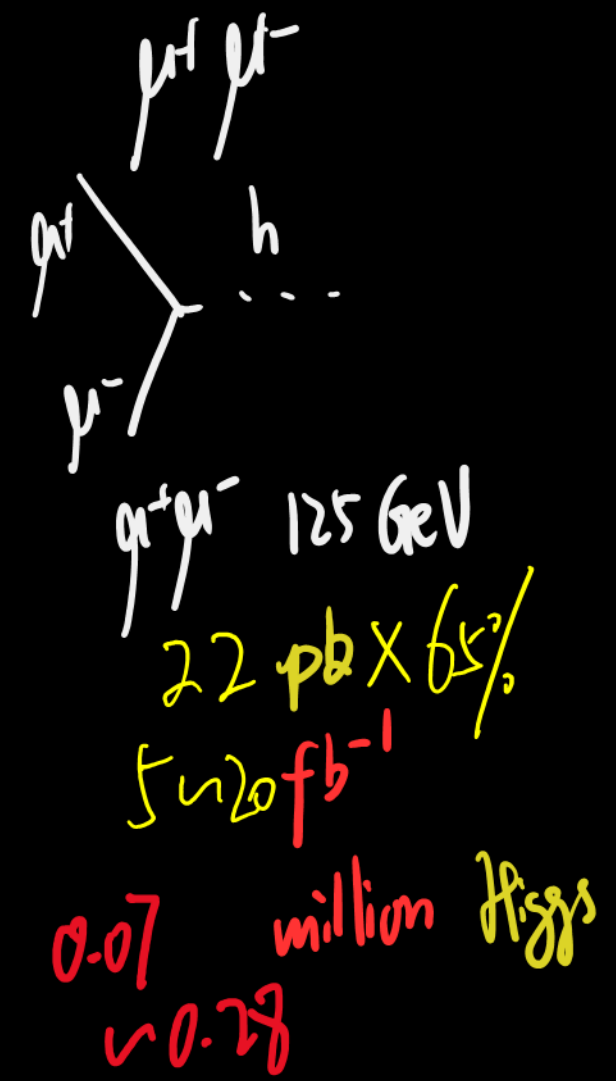 μ+ μ-
μ+
h
μ-
μ+μ- 125 GeV
22 pb × 65%
5~20 fb-1
0.07 million Higgs
~0.28